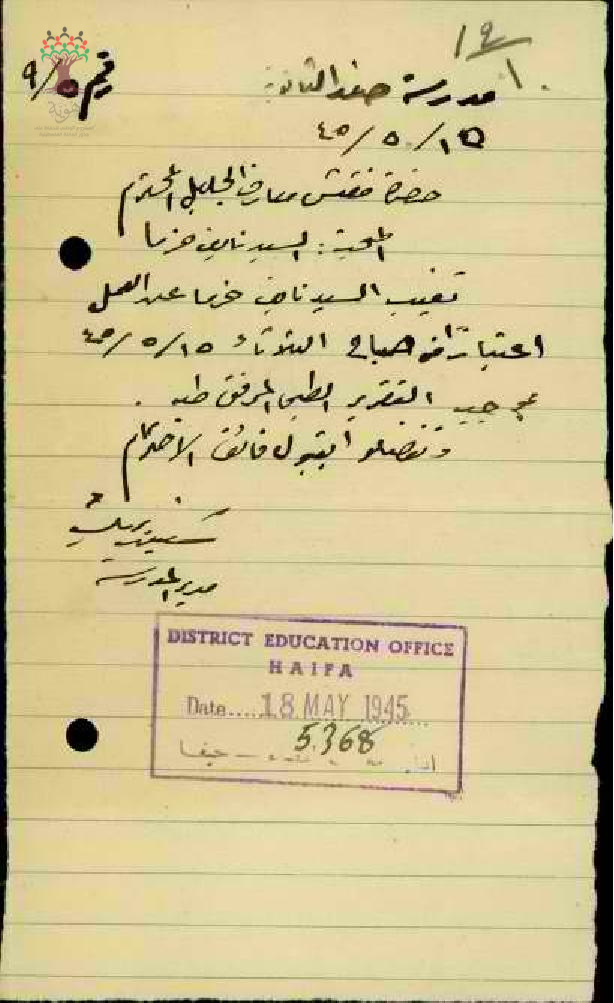 ١٩/١
مدرسة صفد الثانوية
١٥/٥/٤٥
حضرة مفتش معارف الجليل المحترم
السيد نايف خرما
تغيب السيد نايف خرما عن العمل
اعتباراً من صباح الثلاثاء ١٥/٥/٤٥
بموجب التقرير الطبي المرفق طيه .
وتفضلوا بقبول فائق الاحترام
مدير المدرسة
DISTRICT EDUCATION OFFICE
HAIFA
Date.....18 MAY 1945
5368
حيفا